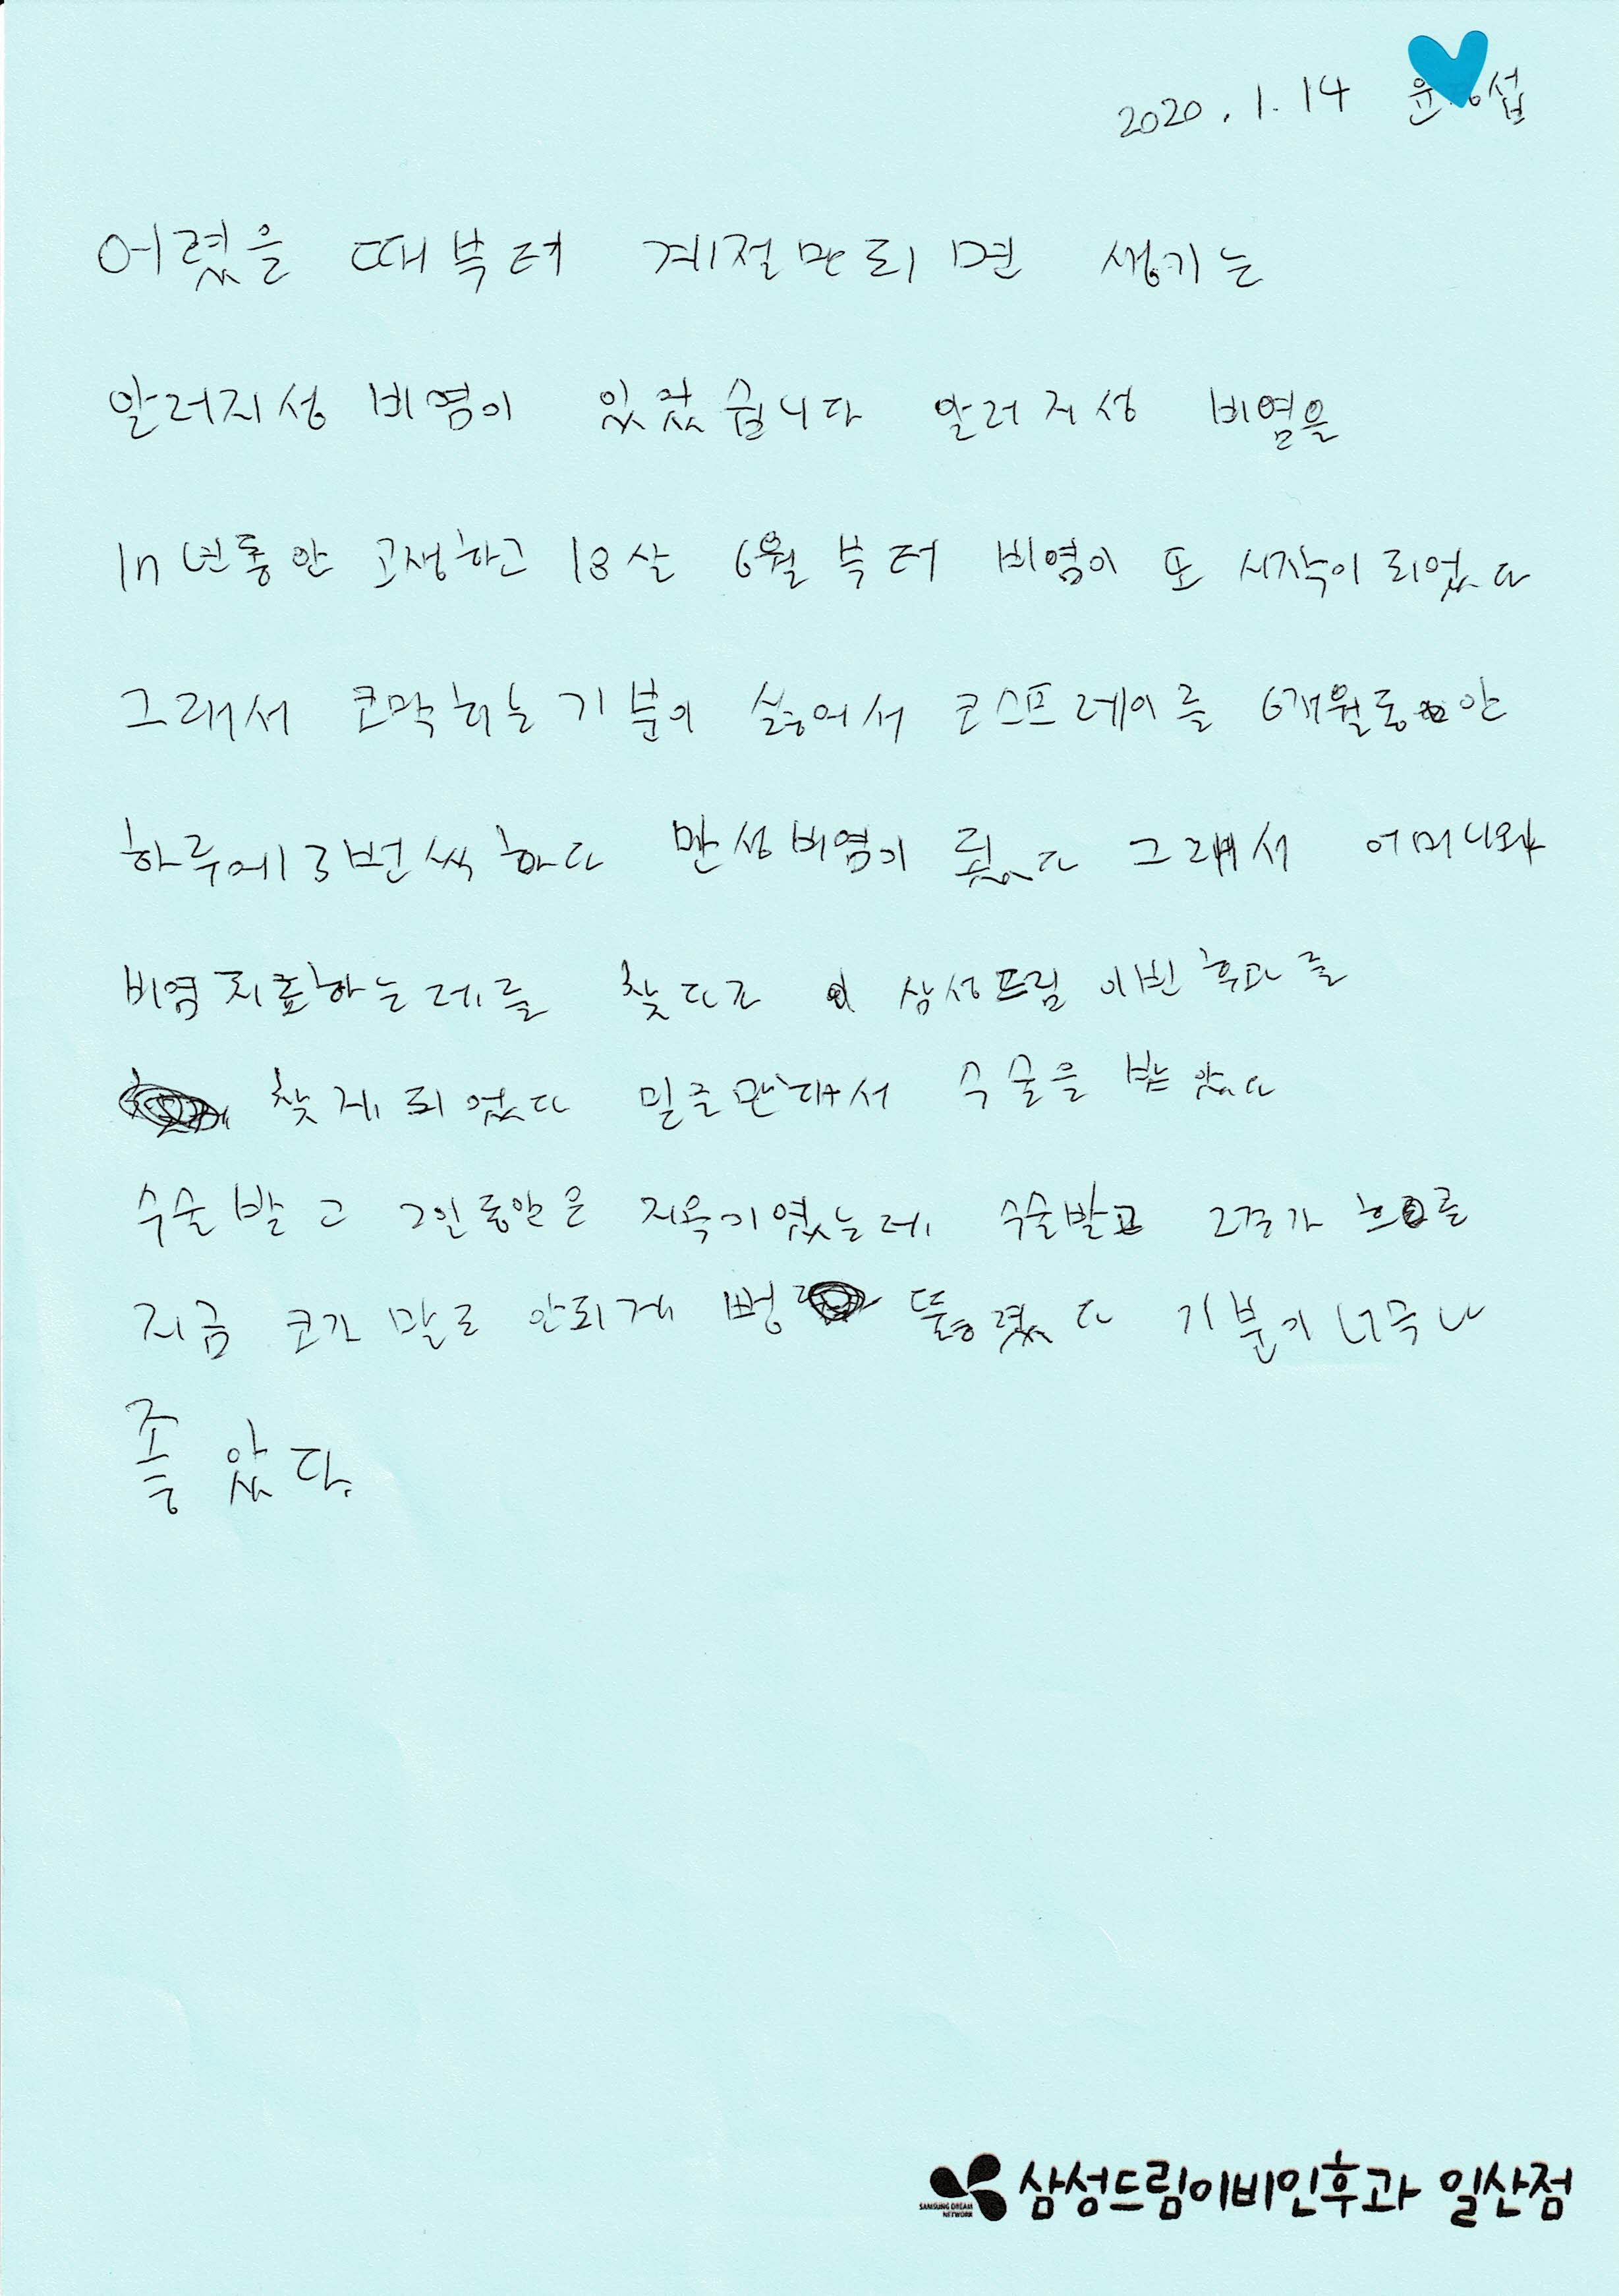 2020. 1. 14 윤 섭
어렸을 때부터 계절만 되면 생기는
알러지성 비염이 있었습니다 알러지성 비염을
1n년동안 고생하고 18살 6월부터 비염이 또 시작이 되었다
그래서 코막히는 기분이 싫어서 코스프레이를 6개월동안
하루에 3번씩 하다 만성비염이 됬다 그래서 어머니와
비염치료하는데를 찾다고 삼성드림 이빈후과를
찾게 되었다 믿음만해서 수술을 받았다
수술 받고 2일동안은 지옥이였는데 수술받고 2주가 흐를
지금 코가 말로 안되게 뻥 뚫렸다 기분이 너무나
좋았다.
삼성드림이비인후과 일산점
SAMSUNG DREAM
NETWORK